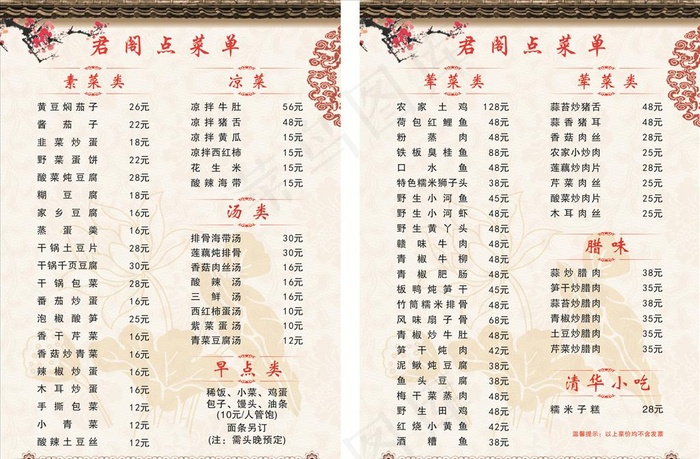 君阁点菜单
素菜类
黄豆焖茄子 26元
酱茄子 22元
韭菜炒蛋 18元
野菜蛋饼 22元
酸菜炖豆腐 28元
糊豆腐 18元
家乡豆腐 16元
蒸蛋羹 16元
干锅土豆片 28元
干锅千页豆腐 30元
干锅包菜 28元
番茄炒蛋 16元
泡椒酸笋 25元
香干芹菜 16元
香菇炒青菜 16元
辣椒炒蛋 16元
木耳炒蛋 16元
手撕包菜 12元
小青菜 12元
酸辣土豆丝 12元
凉菜
凉拌牛肚 56元
凉拌猪舌 48元
凉拌黄瓜 15元
凉拌西红柿 15元
花生米 15元
酸辣海带 15元
汤类
排骨海带汤 30元
莲藕炖排骨 30元
香菇肉丝汤 16元
酸辣汤 16元
三鲜汤 16元
西红柿蛋汤 10元
紫菜蛋汤 10元
青菜豆腐汤 12元
早点类
稀饭、小菜、鸡蛋
包子、馒头、油条
(10元/人管饱)
面条另订
(注：需头晚预定)
君阁点菜单
荤菜类
农家土鸡 128元
荷包红鲤鱼 48元
粉蒸肉 48元
铁板臭桂鱼 68元
口水鱼 48元
特色糯米狮子头 38元
野生小河鱼 45元
野生小河虾 48元
野生黄丫头 48元
赣味牛肉 48元
青椒牛柳 48元
青椒肥肠 48元
板鸭炖笋干 45元
竹筒糯米排骨 48元
风味扇子骨 68元
青椒炒牛肚 48元
笋干炖肉 42元
泥鳅炖豆腐 48元
鱼头豆腐 38元
梅干菜蒸肉 42元
野生田鸡 48元
红烧小黄鱼 42元
酒糟鱼 38元
荤菜类
蒜苔炒猪舌 48元
蒜香猪耳 48元
香菇肉丝 28元
农家小炒肉 25元
莲藕炒肉片 25元
芹菜肉丝 25元
酸菜炒肉片 25元
木耳肉丝 25元
腊味
蒜炒腊肉 38元
笋干炒腊肉 35元
蒜苔炒腊肉 38元
青椒炒腊肉 35元
土豆炒腊肉 35元
芹菜炒腊肉 35元
清华小吃
糯米子糕 28元
温馨提示：以上菜价均不含发票